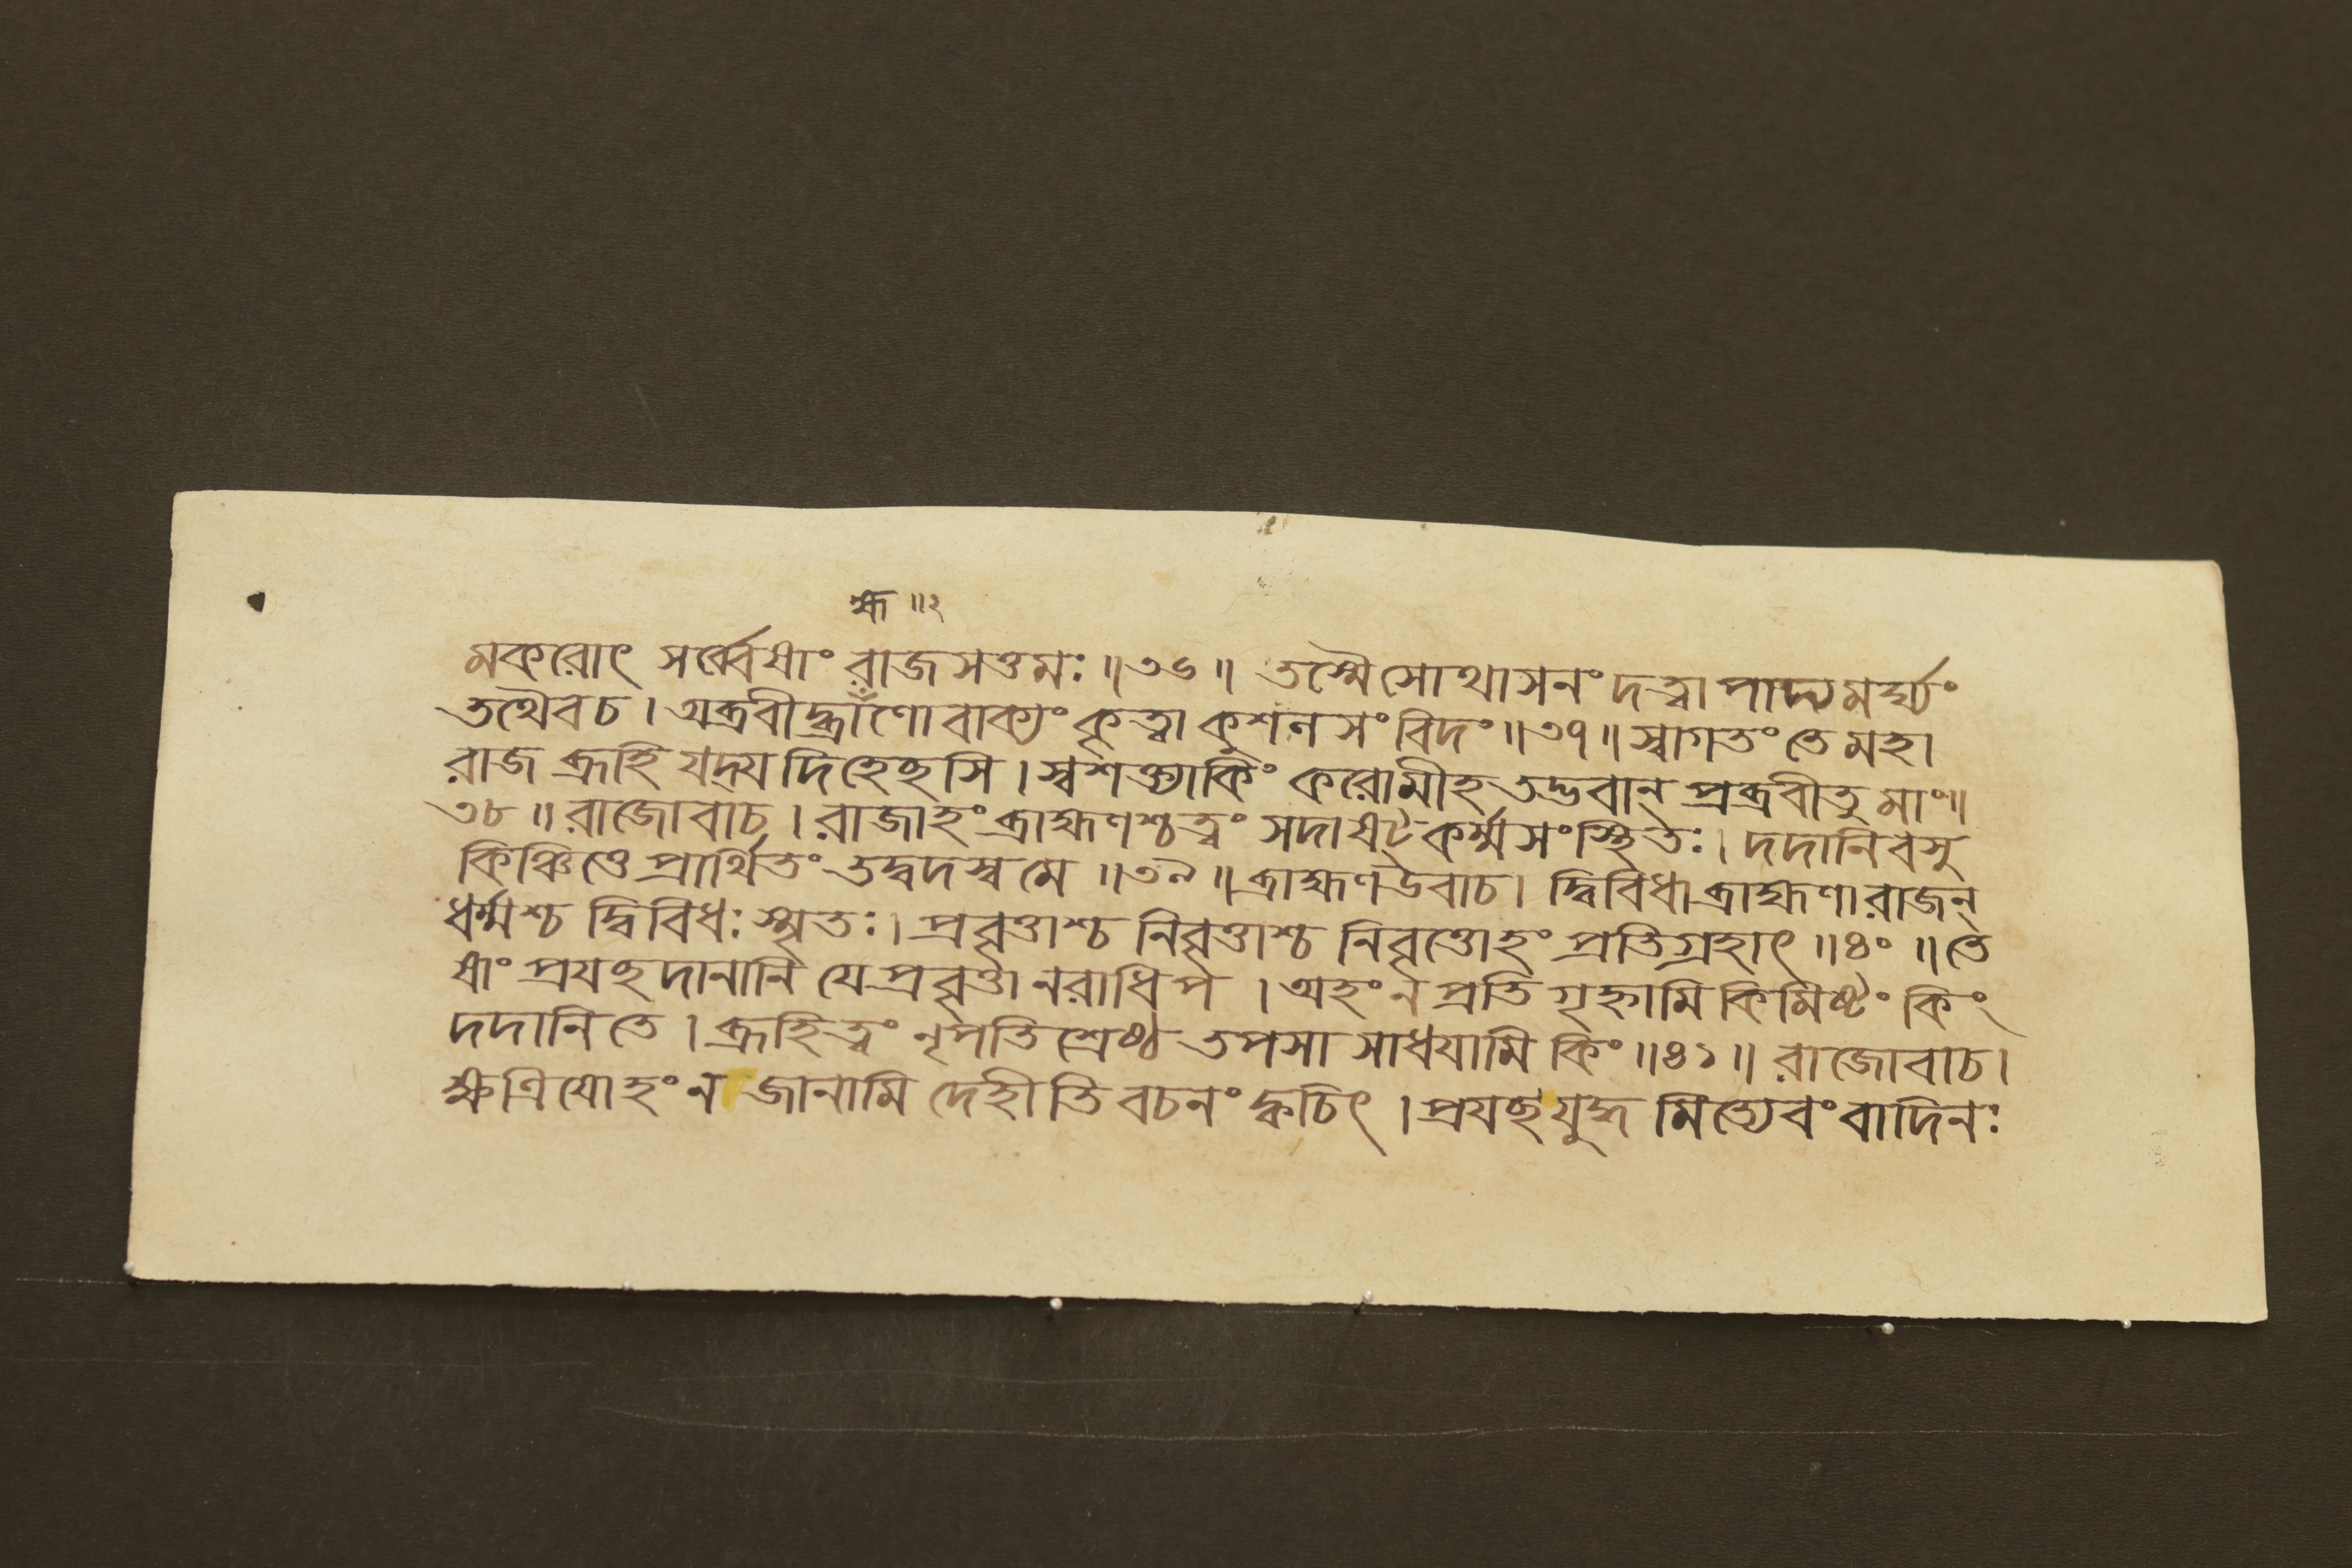 হ্ম ॥২
মকরোৎ সর্ব্বেষাং রাজসত্তমঃ ॥৩৬॥ তস্মৈসোথাসনং দত্ত্বা পাদ্যমর্ঘ্যং
তথৈবচ । অব্রবীদ্ব্রাঁণো বাক্যং কৃত্বা কুশলসংবিদং ॥৩৭॥ স্বাগতং তে মহা
রাজ ব্রূহি যদ্যদিহেছসি । স্বশক্ত্যাকিং করোমীহ তদ্ভবান্ প্রব্রবীতু মাং॥
৩৮ ॥ রাজোবাচ । রাজাহং ব্রাহ্মণশ্চত্বং সদাষট্কর্ম্মসংস্থিতঃ । দদানিবসু
কিঞ্চিত্তে প্রার্থিতং তদ্বদস্ব মে ॥৩৯॥ ব্রাহ্মণউবাচ । দ্বিবিধা ব্রাহ্মণা রাজন্
ধর্ম্মশ্চ দ্বিবিধঃ স্মৃতঃ । প্রবৃত্তাশ্চ নিবৃত্তাশ্চ নিবৃত্তোহং প্রতিগ্রহাৎ ॥৪০ ॥ তে
ষাং প্রযছ দানানি যে প্রবৃত্তা নরাধিপ । অহং ন প্রতিগৃহ্নামি কিমিষ্টং কিং
দদানি তে । ব্রূহিত্বং নৃপতিশ্রেষ্ঠ তপসা সাধযামি কিং ॥৪১॥ রাজোবাচ ।
ক্ষত্রিযোহং ন জানামি দেহীতি বচনং ক্বচিৎ । প্রযছ যুদ্ধ মিত্যেবং বাদিনঃ